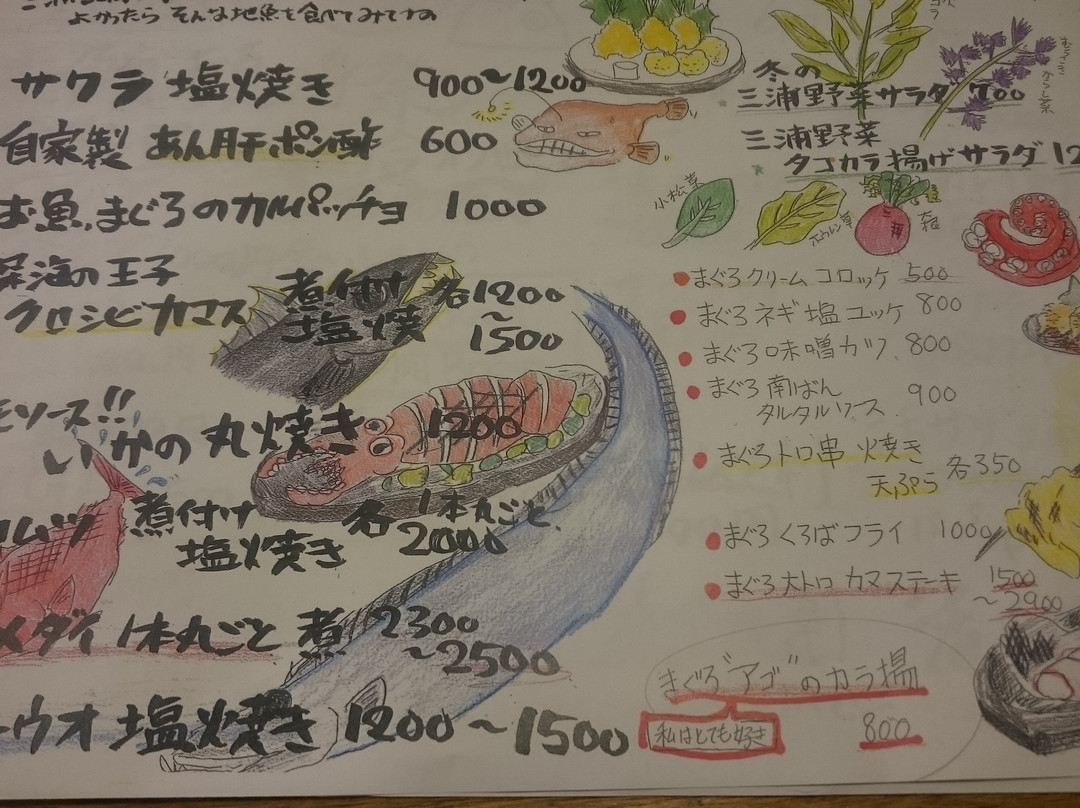 よかったら そんな地魚を食べてみてね
サクラ 塩焼き 900~1200
自家製 あん肝ポン酢 600
お魚、まぐろのカルパッチョ 1000
深海の王子
クロシビカマス 煮付け 塩焼 各1200
~1500
モソース!!
いかの丸焼き 1200
ムツ 煮付け 塩焼き 各 1本丸ごと、2000
メダイ 1本丸ごと 煮 2300
~2500
ウオ 塩焼き 1200~1500
冬の
三浦野菜サラダ 700
むらさき からし菜
三浦野菜
タコカラ揚げサラダ 12
小松菜
ホウレン草
大根
まぐろクリームコロッケ 500
まぐろ ネギ塩ユッケ 800
まぐろ味噌カツ 800
まぐろ 南ばん
タルタルソース 900
まぐろトロ串 火焼き
天ぷら 各350
まぐろ くろばフライ 1000
まぐろ 大トロ カマステーキ 1500
~2900
まぐろ"アゴ"のカラ揚
私はとても好き 800